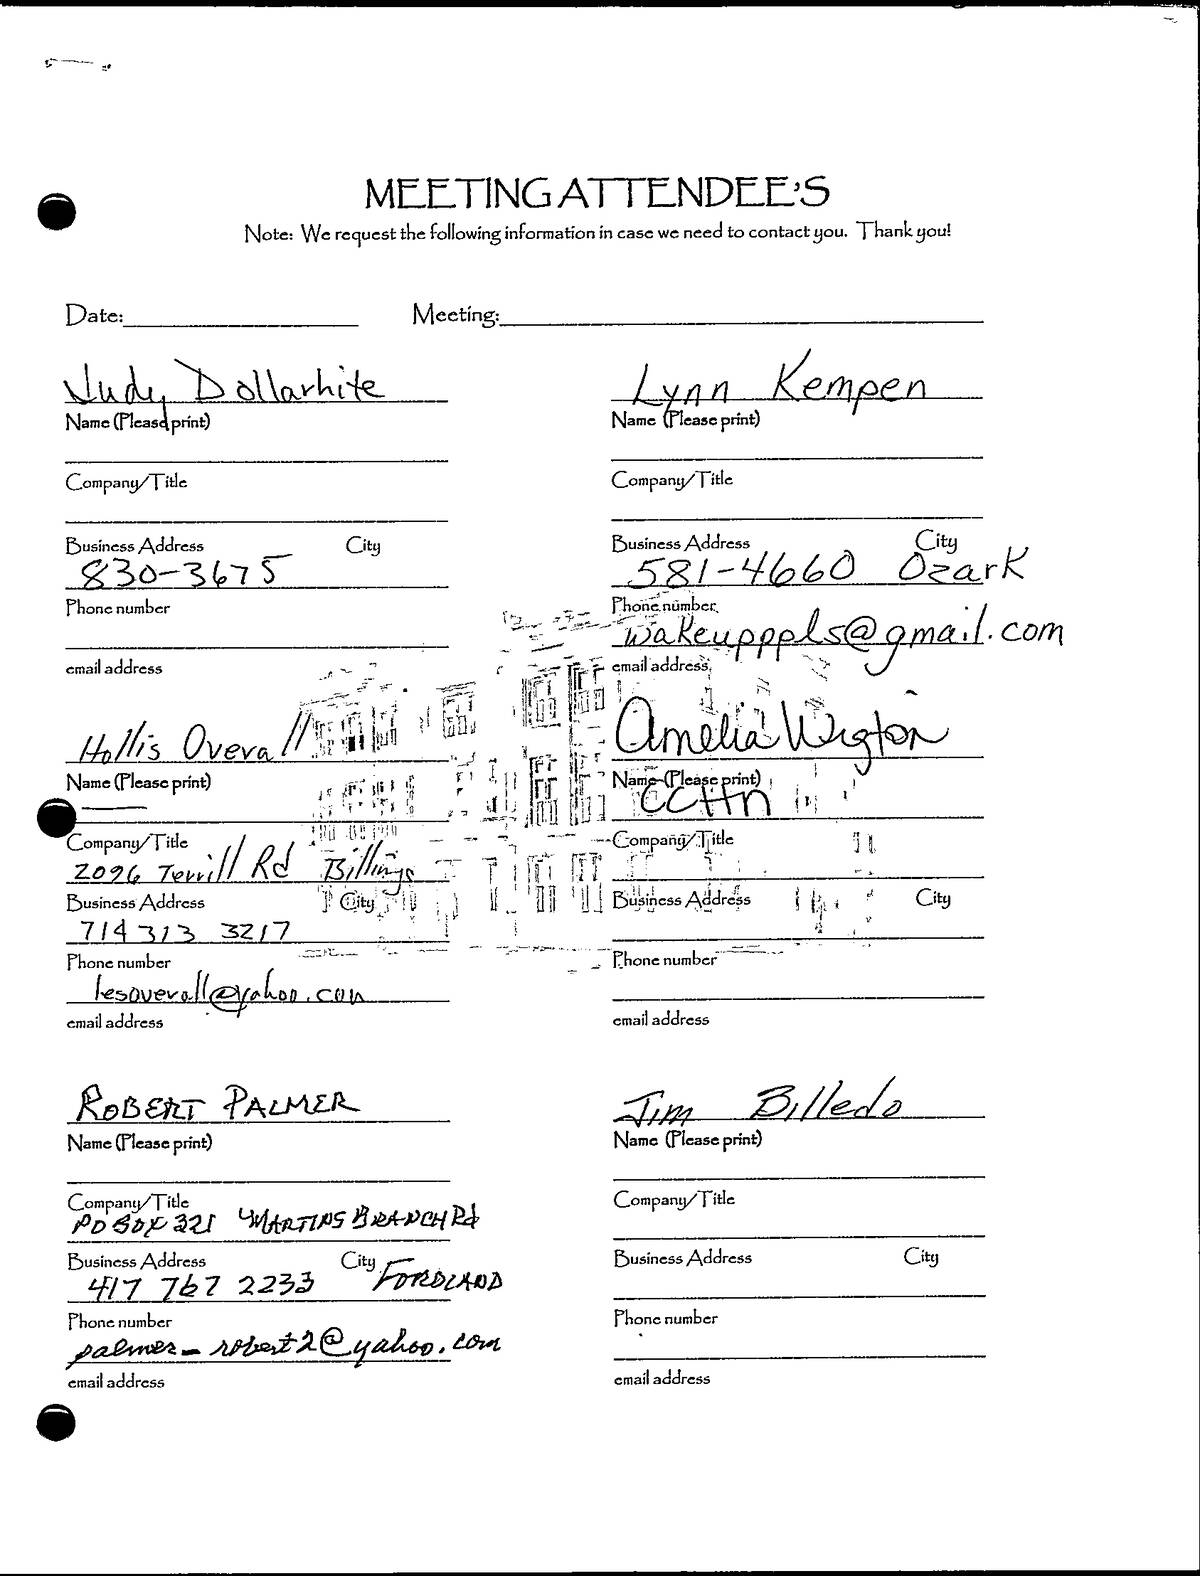 MEETING ATTENDEE'S
Note: We request the following information in case we need to contact you. Thank you!
Date: Meeting:
Judy Dollarhite
Name (Please print)
Company/Title
Business Address City
830-3675
Phone number
email address
Lynn Kempen
Name (Please print)
Company/Title
Business Address City
581-4660 Ozark
Phone number
wakeupppls@gmail.com
email address
Hollis Overall
Name (Please print)
Company/Title
2096 Terrill Rd Billings
Business Address City
714 313 3217
Phone number
lesoverall@yahoo.com
email address
Amelia Wigton
Name (Please print)
CCHN
Company/Title
Business Address City
Phone number
email address
ROBERT PALMER
Name (Please print)
Company/Title
PO BOX 321 MARTINS BRANCH Rd
Business Address City
417 767 2233 FORDLAND
Phone number
palmer-robert2@yahoo.com
email address
Jim Billedo
Name (Please print)
Company/Title
Business Address City
Phone number
email address